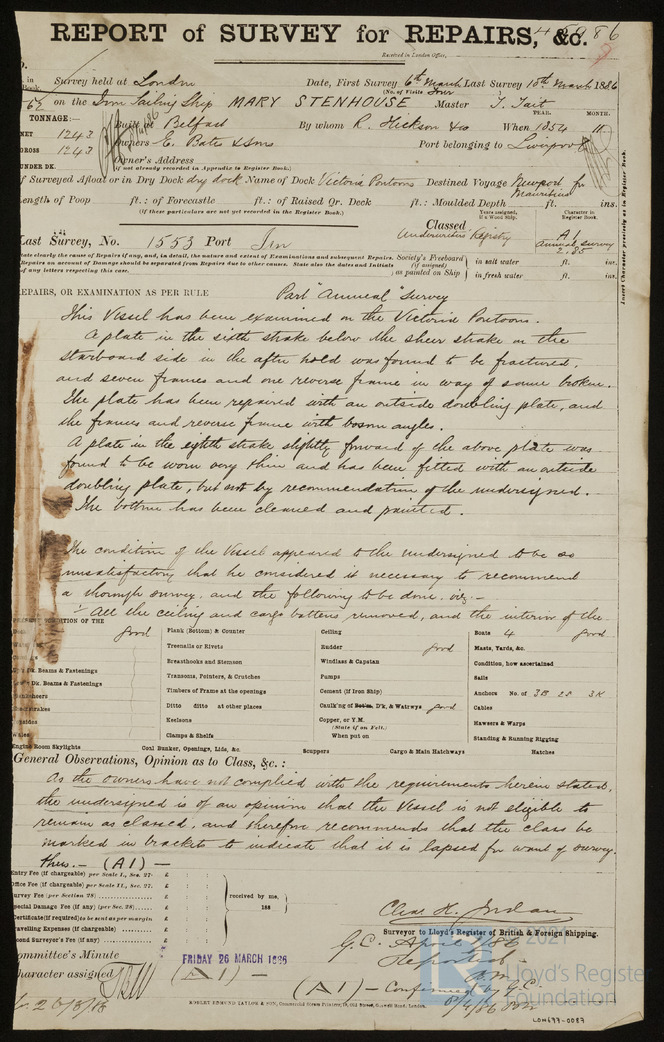 REPORT of SURVEY for REPAIRS, &c. 45986
Received in London Office,
Survey held at London Date, First Survey 6th March Last Survey 10th March 1886
(No. of Visits four
on the Iron Sailing Ship MARY STENHOUSE Master T. Tait
TONNAGE:— YEAR. MONTH.
NET 1243 Built at Belfast By whom R. Hickson & Co When 1854 11
GROSS 1243 Owners E. Bates & Sons Port belonging to Liverpool
UNDER DK. Owner's Address
(if not already recorded in Appendix to Register Book.)
If Surveyed Afloat or in Dry Dock dry dock Name of Dock Victoria Pontoons Destined Voyage Newport for Mauritius
Length of Poop ft.: of Forecastle ft.: of Raised Qr. Deck ft.: Moulded Depth ft. ins.
(If these particulars are not yet recorded in the Register Book.)
Years assigned, if a Wood Ship. Character in Register Book.
Classed
Underwriters Registry A1
annual survey
2.85
Last Survey, No. 1553 Port
State clearly the cause of Repairs if any, and, in detail, the nature and extent of Examinations and subsequent Repairs. Repairs on account of Damage should be separated from Repairs due to other causes. State also the dates and Initials of any letters respecting this case.
Society's Freeboard (if assigned) as painted on Ship
in salt water ft. ins.
in fresh water ft. ins.
Insert Character precisely as in Register Book.
REPAIRS, OR EXAMINATION AS PER RULE Part "Annual" Survey
This Vessel has been examined on the Victoria Pontoons.
A plate in the sixth strake below the sheer strake on the
starboard side in the after hold was found to be fractured,
and seven frames and one reverse frame in way of same broken.
The plate has been repaired with an outside doubling plate, and
the frames and reverse frame with bosom angles.
A plate in the eighth strake slightly forward of the above plate was
found to be worn very thin and has been fitted with an outside
doubling plate, but not by recommendation of the undersigned.
The bottom has been cleaned and painted.
The condition of the Vessel appeared to the undersigned to be so
unsatisfactory that he considered it necessary to recommend
a thorough survey, and the following to be done, viz:—
1/ All the ceiling and cargo battens removed, and the interior of the
PRESENT CONDITION OF THE
good Plank (Bottom) & Counter Ceiling Boats 4 good
Treenails or Rivets Rudder good Masts, Yards, &c.
Breasthooks and Stemson Windlass & Capstan Condition, how ascertained
Dk. Beams & Fastenings Transoms, Pointers, & Crutches Pumps Sails
Dk. Beams & Fastenings Timbers of Frame at the openings Cement (if Iron Ship) Anchors No. of 3B 2S 3K
Ditto ditto at other places Caulking of Bot'm. D'k, & Watrwys good Cables
Keelsons Copper, or Y.M. Hawsers & Warps
(State if on Felt.)
Wales Clamps & Shelfs When put on Standing & Running Rigging
Engine Room Skylights Coal Bunker, Openings, Lids, &c. Scuppers Cargo & Main Hatchways Hatches
General Observations, Opinion as to Class, &c. :
As the owners have not complied with the requirements herein stated,
the undersigned is of an opinion that the Vessel is not eligible to
remain as classed, and therefore recommends that the class be
marked in brackets to indicate that it is lapsed for want of survey.
thus.— (A1) —
Entry Fee (if chargeable) per Scale I., Sec. 27. £ : :
Office Fee (if chargeable) per Scale II., Sec. 27. £ : :
Survey Fee (per Section 28) £ : :
Special Damage Fee (if any) (per Sec. 28) £ : :
Certificate (if required) to be sent as per margin
Travelling Expenses (if chargeable) £ : :
Second Surveyor's Fee (if any) £ : :
received by me,
188
Chas. H. Jordan
Surveyor to Lloyd's Register of British & Foreign Shipping.
Committee's Minute FRIDAY 26 MARCH 1886
Character assigned (A1) —
(A1) — Confirmed by G.C.
ROBERT EDMUND TAYLOR & SON,
© 2021
Lloyd's Register
Foundation
LON697-0087